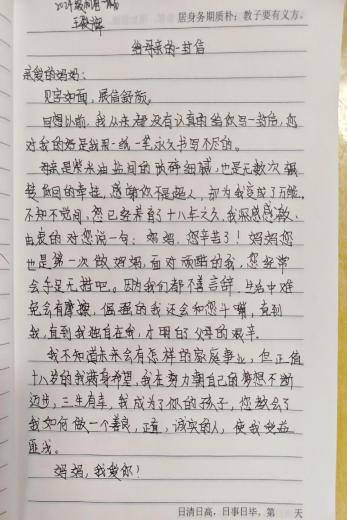 居身务期质朴；教子要有义方。
给母亲的一封信
亲爱的妈妈：
见字如面，展信舒颜。
回想以前，我从来都没有认真的给你写一封信，您
对我的好是我用一纸一笔永久书写不尽的。
母亲是柴米油盐间的琐碎细腻，也是无数次辗
转 的牵挂，感谢你不是超人，却为我变成了万能。
不知不觉间，您已经养育了十八年之久，我深感感激，
由衷的对您说一句：妈妈，您辛苦了！妈妈您
也是第一次做妈妈，面对顽皮的我，您经常
会手足无措吧。因为我们都不善言辞，生活中难
免会有摩擦，倔强的我还会和您斗嘴，直到
我，直到我独自在外，才明白了父母的艰辛。
我不知道未来会有怎样的家庭事业，但正值
十八岁的我满身希望，我在努力朝自己的梦想不断
迈步，三生有幸，我成为了你的孩子，您教会了
我如何做一个善良，正直，诚实的人，使我受益
匪浅。
妈妈，我爱你！
日清日高，日事日毕，第 天